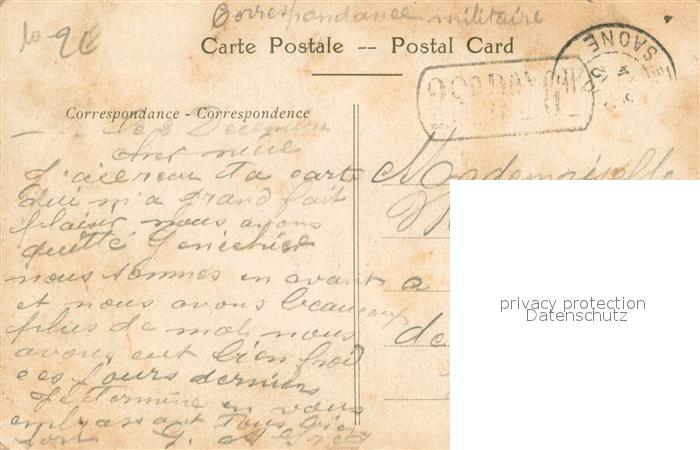 Correspondance militaire
10-9€
Carte Postale -- Postal Card
SAONE
Correspondance - Correspondence
le 8 Decembre
J'ai recu ta carte
qui m'a grand fait
plaisir nous avons
quitté
nous sommes en avant
et nous avons beaucoup
plus de mal nous
avons eut bien froid
ces jours derniers
Je termine en vous
embrassant tous bien
fort G.
Mademoiselle
a
de
privacy protection
Datenschutz